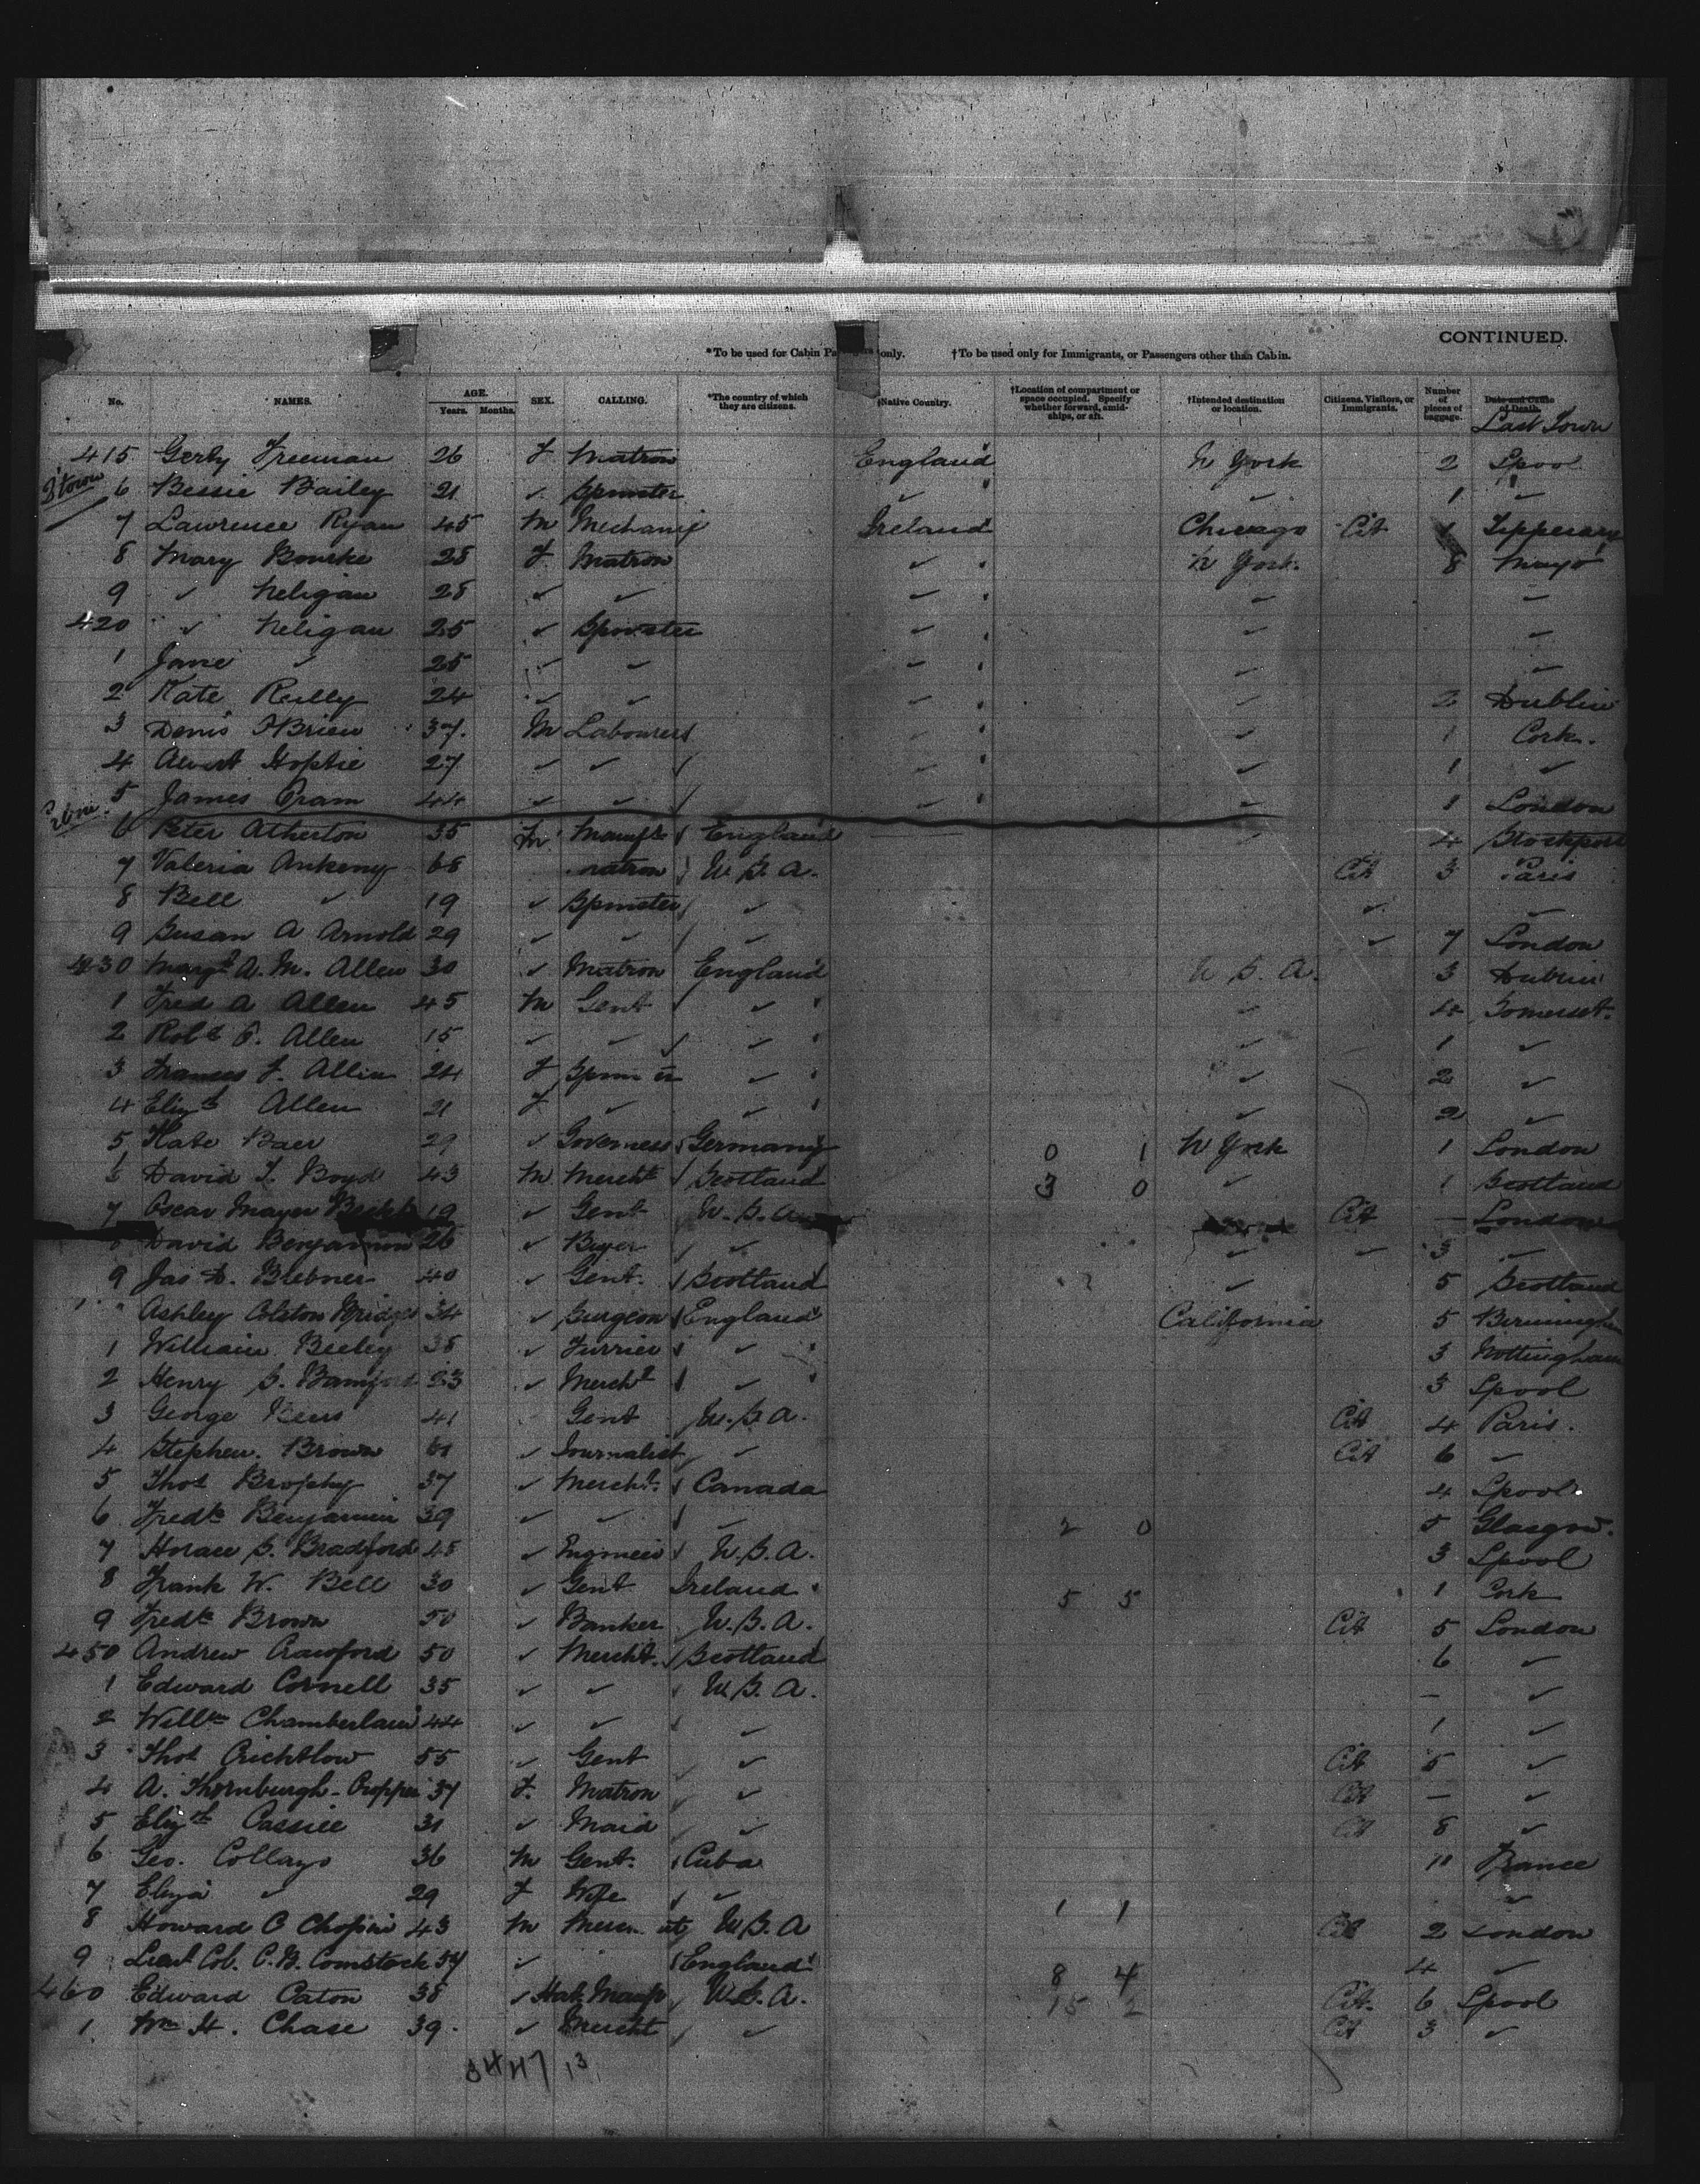 CONTINUED.
*To be used for Cabin Passengers only. †To be used only for Immigrants, or Passengers other than Cabin.
No. NAMES. AGE. Years. Months. SEX. CALLING. *The country of which they are citizens. †Native Country. †Location of compartment or space occupied. Specify whether forward, amidships, or aft. †Intended destination or location. Citizens, Visitors, or Immigrants. Number of pieces of baggage. Date and Cause of Death. Last Town
415 Gerty Freeman 26 F Matron England N York 2 Lpool
6 Bessie Bailey 21 ✓ Spinster ✓ ✓ 1 ✓
7 Lawrence Ryan 45 M Mechanic Ireland Chicago Cit 1 Tipperary
8 Mary Bourke 28 F Matron ✓ N York. 8 Mayo
9 ✓ Neligan 28 ✓ ✓ ✓ ✓ ✓
420 ✓ Neligan 25 ✓ Spinster ✓ ✓ ✓
1 Jane ✓ 25 ✓ ✓ ✓ ✓ ✓
2 Kate Reilly 24 ✓ ✓ ✓ ✓ 2 Dublin
3 Denis OBrien 37. M Labourers ✓ ✓ 1 Cork.
4 27 ✓ ✓ ✓ ✓ 1 ✓
5 James 44 ✓ ✓ ✓ ✓ 1 London
6 Peter Atherton 35 M Manufr England 4 Stockport
7 Valeria Ankeny 68 Matron U.S.A. Cit 3 Paris
8 Bell ✓ 19 ✓ Spinster ✓ ✓ ✓
9 Susan A Arnold 29 ✓ ✓ ✓ ✓ 7 London
430 Margt A. M. Allen 30 ✓ Matron England U.S.A. 3 Dublin
1 Fred A Allen 45 M Gent ✓ ✓ 4 Somerset.
2 Robt Allen 15 ✓ ✓ ✓ ✓ 1 ✓
3 Frances F. Allen 24 F Spinster ✓ ✓ 2 ✓
4 Elizth Allen 21 F ✓ ✓ ✓ 2 ✓
5 Kate Baer 29 ✓ Governess Germany 0 1 N York 1 London
6 David T. Boyd 43 M Mercht Scotland 3 0 ✓ 1 Scotland
7 Oscar Mayer 19 ✓ Gent U.S.A. Cit — London
8 David Benjamin 26 ✓ Buyer ✓ ✓ ✓ 3 ✓
9 Jas D. Brebner 40 ✓ Gent. Scotland ✓ 5 Scotland
Ashley Colston Bridges 34 ✓ Surgeon England California 5 Birmingham
1 William Beeley 38 ✓ Furrier ✓ 3 Nottingham
2 Henry S. Bamford 23 ✓ Mercht ✓ 3 Lpool
3 George 41 Gent U.S.A. Cit 4 Paris.
4 Stephen. Brown 61 ✓ Journalist ✓ Cit 6 ✓
5 Thos Brophy 37 ✓ Mercht. Canada 4 Lpool
6 Fredk Benjamin 39 ✓ ✓ ✓ 2 0 5 Glasgow.
7 Horace S. Bradford 45 ✓ Engineer U.S.A. 3 Lpool
8 Frank W. Bell 30 ✓ Gent Ireland 5 5 1 Cork
9 Fredk Brown 50 ✓ Banker U.S.A. Cit 5 London
450 Andrew Crawford 50 ✓ Mercht. Scotland 6 ✓
1 Edward Cornell 35 ✓ ✓ U.S.A. — ✓
2 Willm Chamberlain 44 ✓ ✓ ✓ 1 ✓
3 Thos Crichtlow 55 ✓ Gent ✓ Cit 5 ✓
4 A. Thornburgh-Cropper 37 F. Matron ✓ Cit — ✓
5 Elizth Cassiee 31 ✓ Maid ✓ Cit 8 ✓
6 Geo. Collazo 36 M Gent. Cuba 11 France
7 Eliza ✓ 29 F Wife ✓ 1 1 ✓
8 Howard C Chopin 43 M U.S.A Cit 2 London
9 Lieut Col. C.B. Comstock 54 ✓ England 8 4 4 ✓
460 Edward Caton 38 ✓ Hat Manufr U.S.A. 15 2 Cit. 6 Lpool
1. Wm H. Chase 39. ✓ Mercht ✓ Cit 3 ✓
34 47 13